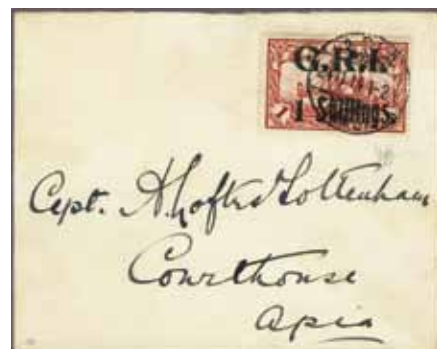 G.R.I.
1 Shillings.
1
Capt. A. Loftus Tottenham
Courthouse
Apia